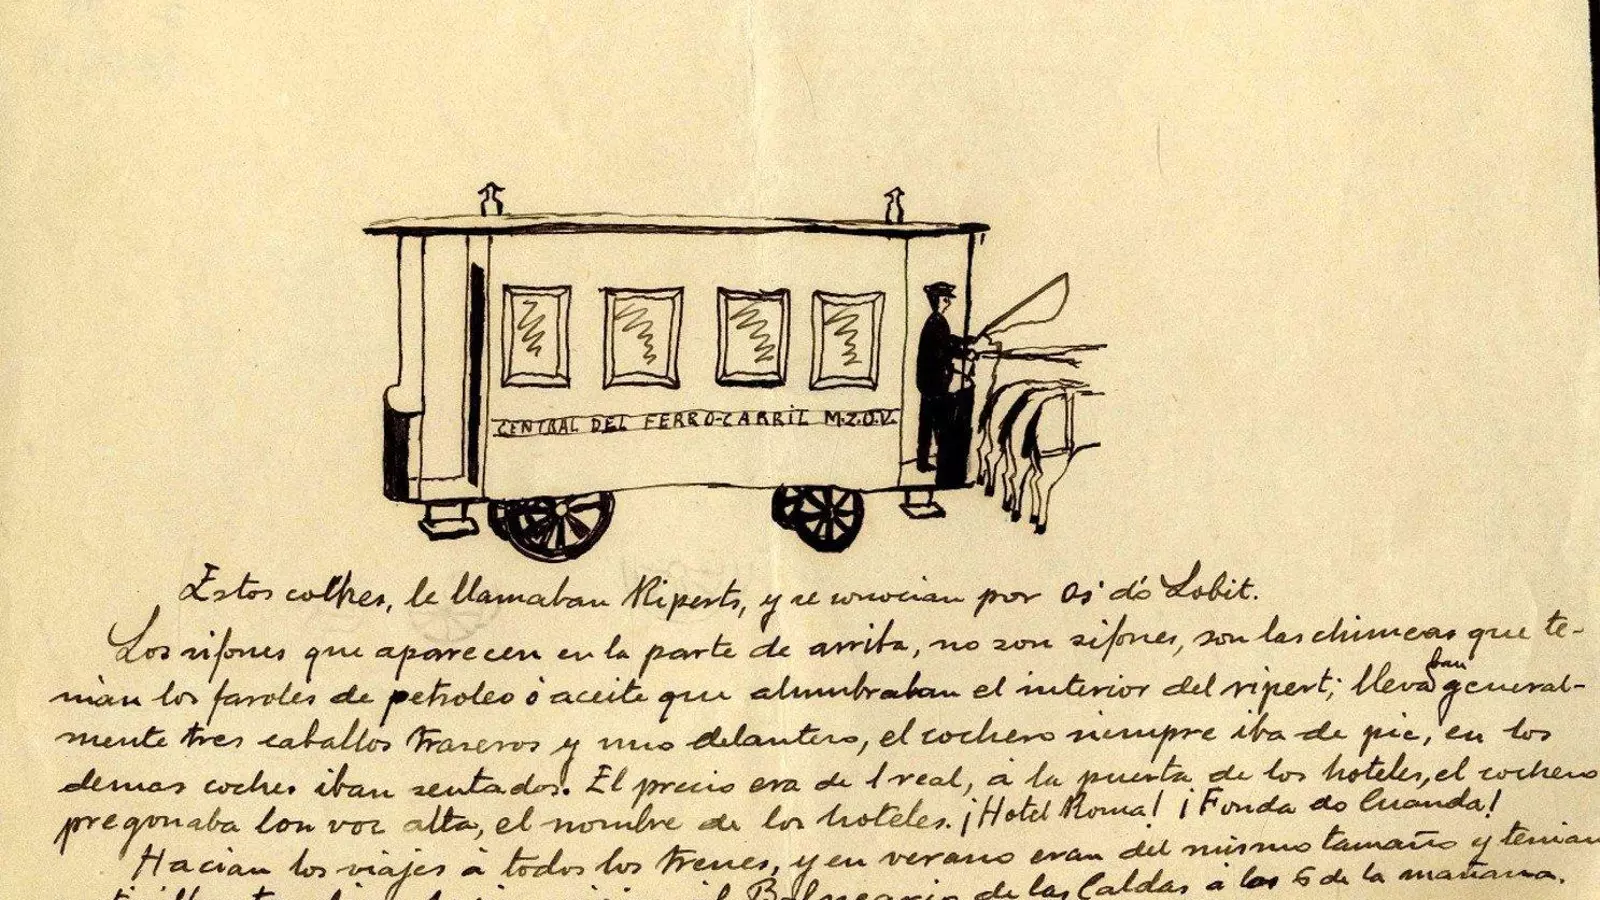 CENTRAL DEL FERRO-CARRIL M.Z.O.V.
Estos coches, le llamaban Riperts, y se conocian por os dó Lobit.
Los sifones que aparecen en la parte de arriba, no son sifones, son las chimeas que te-
nian los faroles de petroleo ó aceite que alumbraban el interior del ripert; llevaban general-
mente tres caballos traseros y uno delantero, el cochero siempre iba de pie, en los
demas coches iban sentados. El precio era de 1 real, á la puerta de los hoteles, el cochero
pregonaba con voz alta, el nombre de los hoteles. ¡Hotel Roma! ¡Fonda do Cuanda!
Hacian los viajes á todos los trenes, y en verano eran del mismo tamaño y tenian
Balneario de las Caldas á las 6 de la mañana.